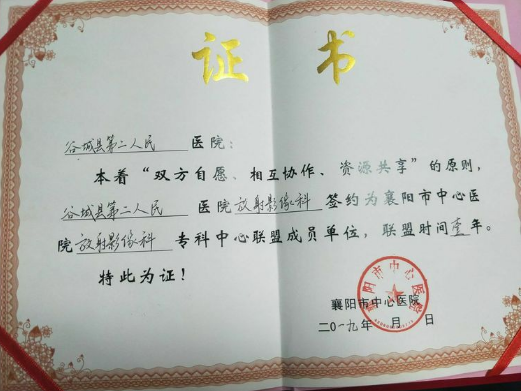 证 书
谷城县第二人民 医院:
本着“双方自愿、相互协作、资源共享”的原则,
谷城县第二人民 医院放射影像科 签约为襄阳市中心医
院放射影像科 专科中心联盟成员单位,联盟时间壹年。
特此为证!
襄阳市中心医院
襄阳市中心医院
二〇一九年 月 日